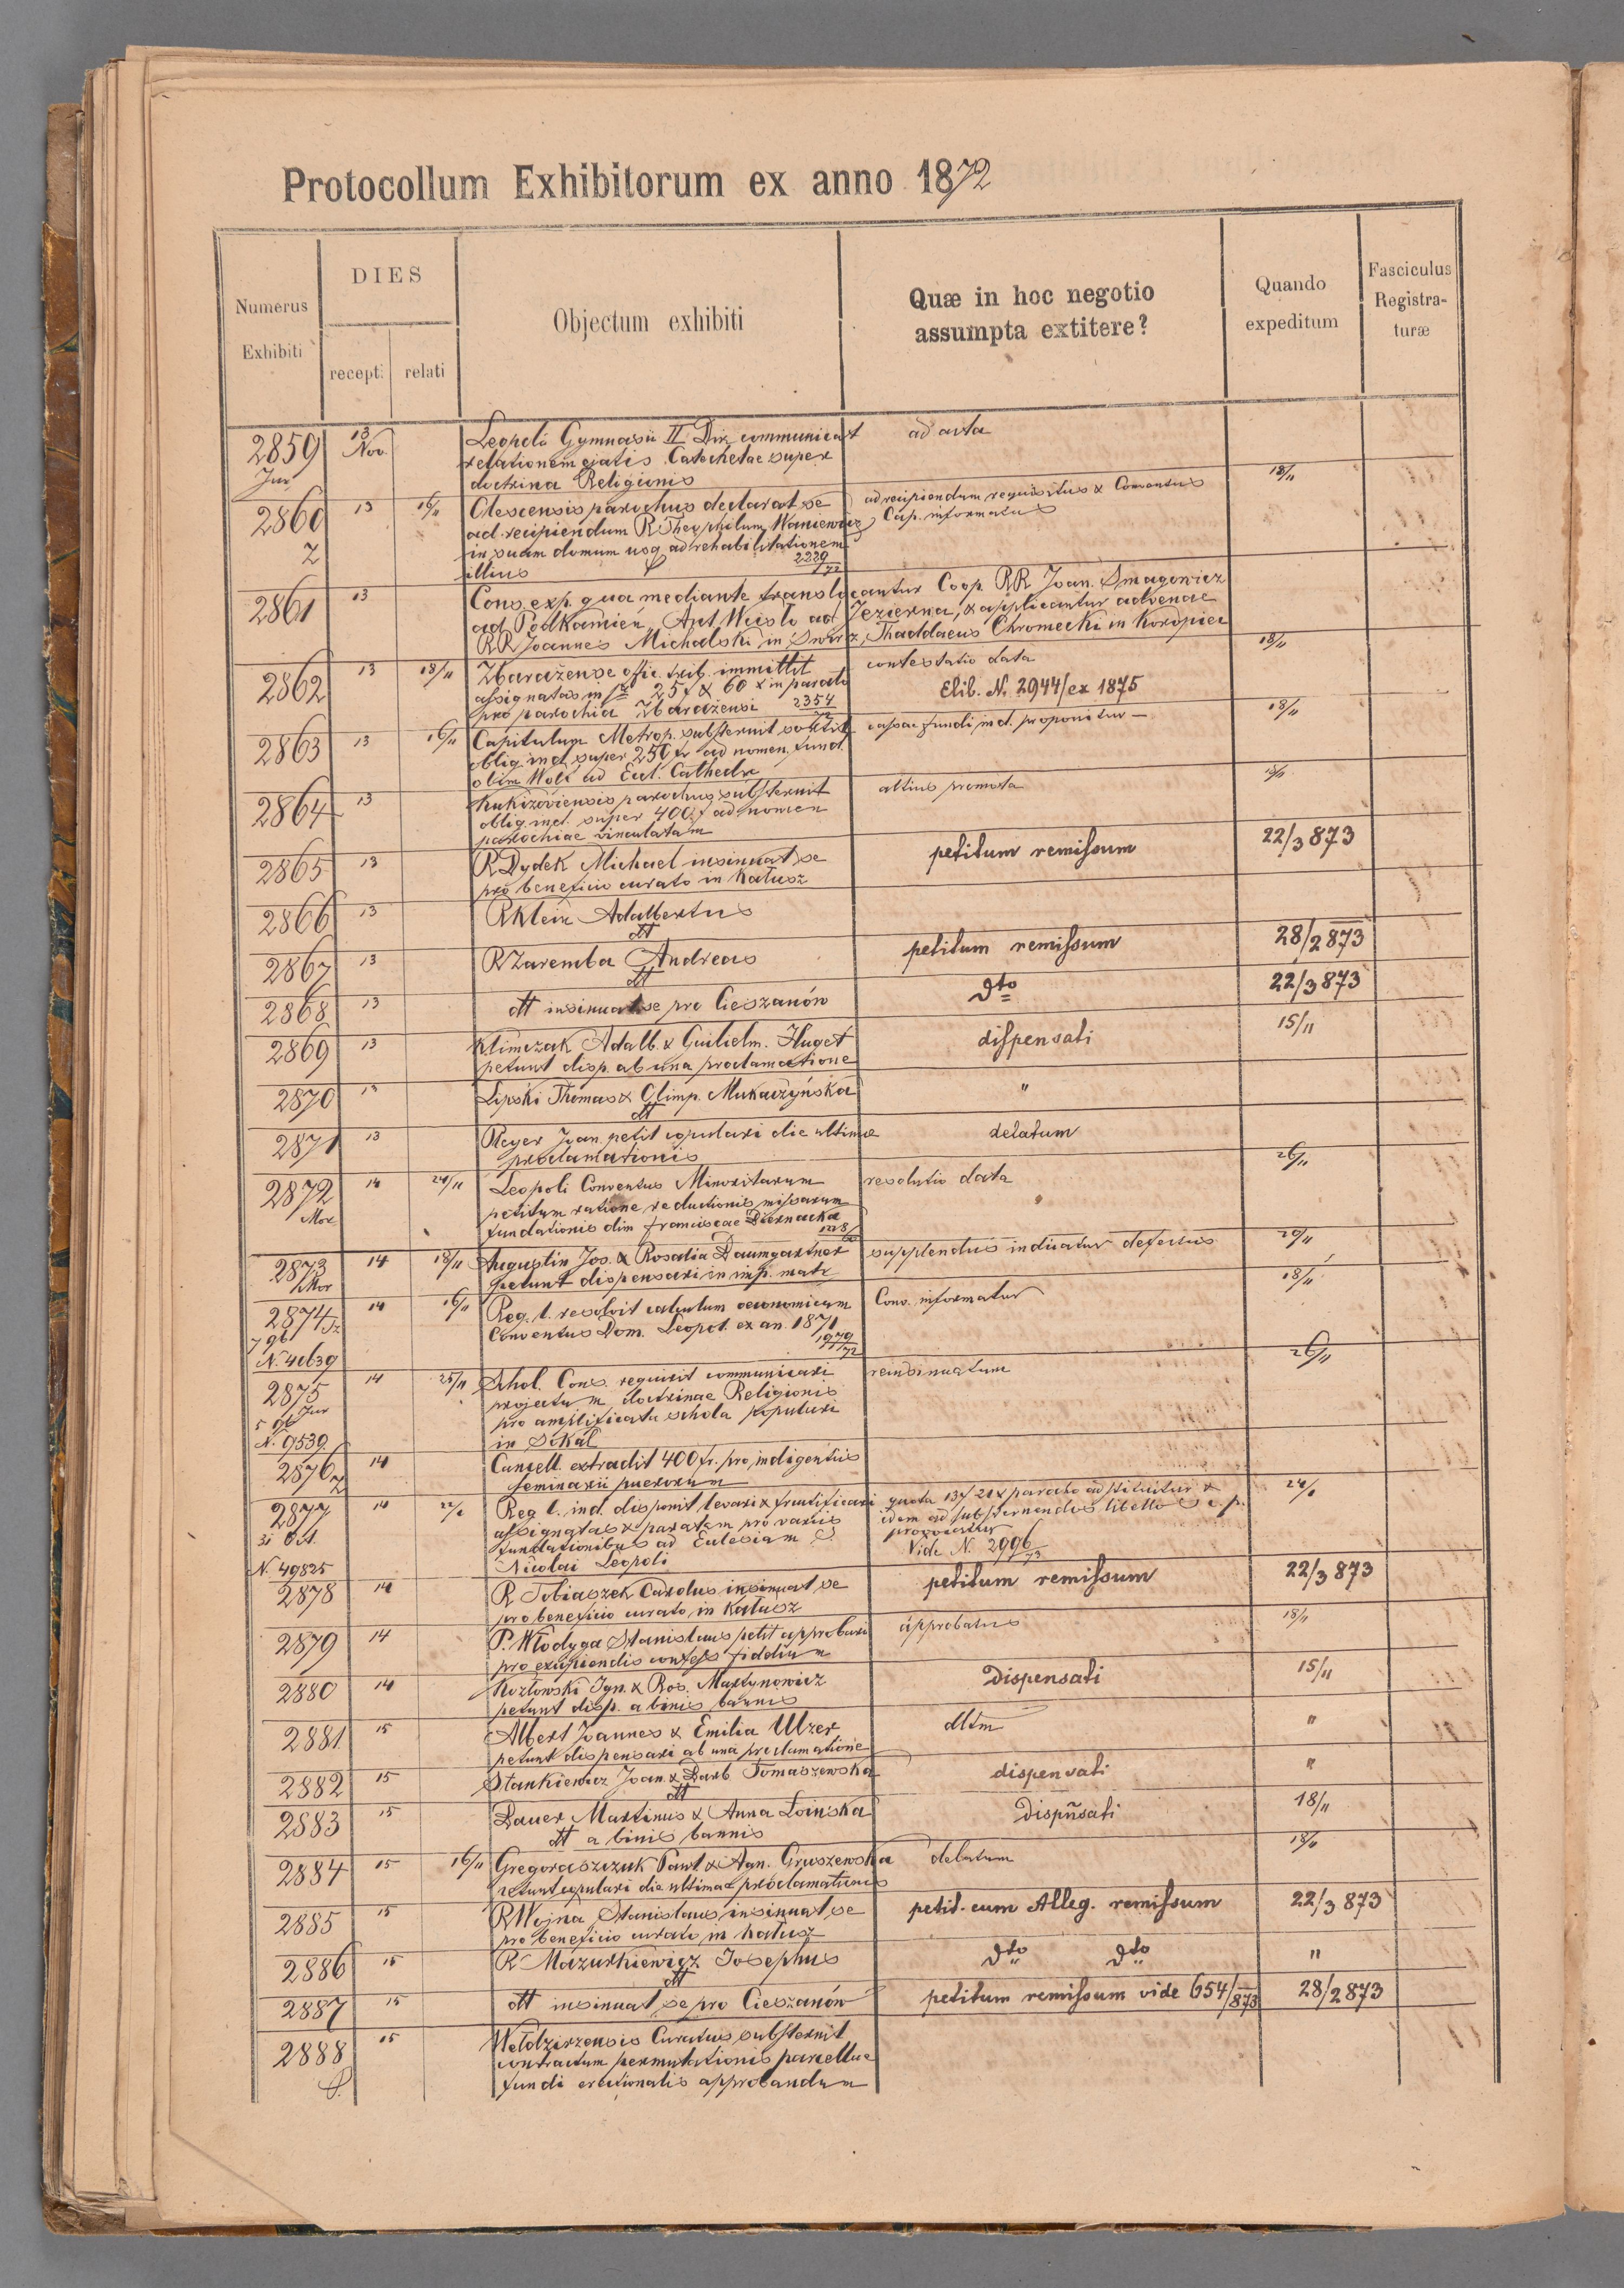 Protocollum Exhibitorum ex anno 1872
Numerus Exhibiti
DIES
recepti
relati
Objectum exhibiti
Quæ in hoc negotio assumpta extitere?
Quando expeditum
Fasciculus Registra-turæ
2859 13 Nov. Leopoli Gymnasii II Dir. communicat ad acta
Jur relationem ejatis Catechetae super
doctrina Religionis
2860 13 16/11 Olescensis parochus declarat se ad recipiendum requisitus & Conventus 18/11
ad recipiendum R Theophilum Waniewicz Cap. informatus
in suam domum usq ad rehabilitationem
illius 2229/72
2861 13 Cons. exp. qua mediante translocantur Coop. RR Joan. Smagowicz
ad Podkamień, Ant. Wiisło ad Jezierna, & applicantur advenae
RR Joannes Michalski in Swirz, Thaddaeus Chromecki in Koropiec
2862 13 18/11 Zbaražense offic. trib. immittit contestatio data 18/11
assignatas in 25 f & 60 x in parato Elib. N. 2944/ex 1875
pro parochia Zbaražensi 2354/72
2863 13 16/11 Capitulum Metrop. substernit cassae fundi ind. proponitur — 18/11
oblig. ind. super 250 fr ad nomen fund.
olim Wolf ad Eccl. Cathedr
2864 13 Kukizoviensis parochus substernit altius promota 18/11
oblig. ind. super 400 f ad nomen
parochiae vinculatam
2865 13 R Dydek Michael insinuat se petitum remissum 22/3 873
pro beneficio curato in Kałusz
2866 13 R Klein Adalbertus
dtt
2867 13 R Zaremba Andreas petitum remissum 28/2 873
dtt
2868 13 dtt insinuat se pro Cieszanów dto 22/3 873
2869 13 Klimczak Adalb. & Guilielm. Huget dispensati 15/11
petunt disp. ab una proclamatione
2870 13 Lipski Thomas & Olimp. Mukaczyńska "
dtt
2871 13 Reyer Joan. petit copulari die ultimae delatum
proclamationis
2872 14 24/11 Leopoli Conventus Minoritarum resolutio data 26/11
Mor. petitum ratione reductionis missarum "
fundationis dim Franciscae Biernacka
2873 14 18/11 Augustin Jos. & Rosalia Baumgartner supplendus indicatur defectus 20/11
Mor petunt dispensari in imp. matr
2874 14 16/11 Reg. l. resolvit calculum oeconomicum Conv. informatur 18/11
7 9b Conventus Dom. Leopol. ex an. 1871
N. 41639 1979/72
2875 14 25/11 Schol. Cons. requirit communicari reinsinuatum 26/11
Jur projectum doctrinae Religionis
5 9b pro amplificata schola populari
N. 9539 in Sokal
2876 14 Cancell. extradit 400 fr. pro indigentiis
Seminarii puerorum
2877 14 Reg. l. ind. disponit levari & fructificari quota 13 f 21 x parato adstituitur &
31 Oct. assignatas & paratam pro variis idem ad substernendos libellos
fundationibus ad Ecclesiam S. provocatur
N. 49825 Nicolai Leopoli Vide N. 2996/73
2878 14 R Tobiaszek Carolus insinuat se petitum remissum 22/3 873
pro beneficio curato in Kałusz
2879 14 P. Włodyga Stanislaus petit approbari approbatus 18/11
pro excipiendis confess fidelium
2880 14 Kozłowski Ign. & Ros. Martynowicz Dispensati 15/11
petunt disp. a binis bannis
2881 15 Albert Joannes & Emilia Ulzer dltm "
petunt dispensari ab una proclamatione
2882 15 Stankiewicz Joan & Barb Tomaszewska dispensati "
dtt
2883 15 Bauer Martinus & Anna Łoińska Dispñsati 18/11
dtt a binis bannis
2884 15 16/11 Gregoraszczuk Pawł & Agn. Gruszewska delatum 18/11
petunt copulari die ultimae proclamationis
2885 15 R Wojna Stanislaus insinuat se petit. cum Alleg. remissum 22/3 873
pro beneficio curato in Kałusz
2886 15 R Mazurkiewicz Josephus dto dto "
dtt
2887 15 dtt insinuat se pro Cieszanów petitum remissum vide 654/873 28/2 873
2888 15 Wełdzirzensis Curatus substernit
contractum permutationis parcellae
fundi erectionalis approbandum